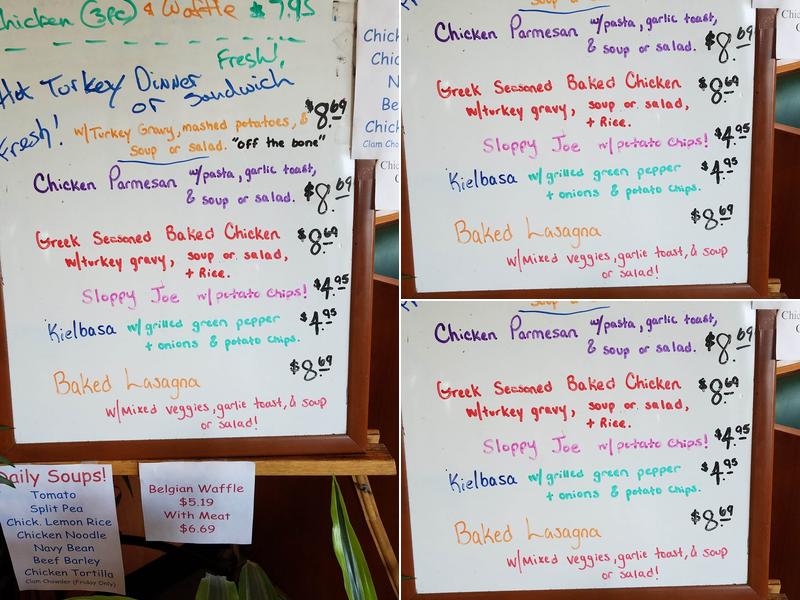 Chicken (3pc) & Waffle $7.95
Fresh!
Hot Turkey Dinner
or Sandwich
Fresh! w/Turkey Gravy, mashed potatoes, & $8.69
Soup or salad. "off the bone"
Chicken Parmesan w/pasta, garlic toast,
& soup or salad. $8.69
Greek Seasoned Baked Chicken $8.69
w/turkey gravy, soup or salad,
+ Rice.
Sloppy Joe w/potato chips! $4.95
Kielbasa w/grilled green pepper $4.95
+ onions & potato chips.
$8.69
Baked Lasagna
w/Mixed veggies, garlic toast, & soup
or salad!
Daily Soups!
Tomato
Split Pea
Chick. Lemon Rice
Chicken Noodle
Navy Bean
Beef Barley
Chicken Tortilla
Clam Chowder (Friday Only)
Belgian Waffle
$5.19
With Meat
$6.69
Chicken Parmesan w/pasta, garlic toast,
& soup or salad. $8.69
Greek Seasoned Baked Chicken $8.69
w/turkey gravy, soup or salad,
+ Rice.
Sloppy Joe w/potato chips! $4.95
Kielbasa w/grilled green pepper $4.95
+ onions & potato chips.
$8.69
Baked Lasagna
w/Mixed veggies, garlic toast, & soup
or salad!
Chicken Parmesan w/pasta, garlic toast,
& soup or salad. $8.69
Greek Seasoned Baked Chicken $8.69
w/turkey gravy, soup or salad,
+ Rice.
Sloppy Joe w/potato chips! $4.95
Kielbasa w/grilled green pepper $4.95
+ onions & potato chips.
$8.69
Baked Lasagna
w/Mixed veggies, garlic toast, & soup
or salad!